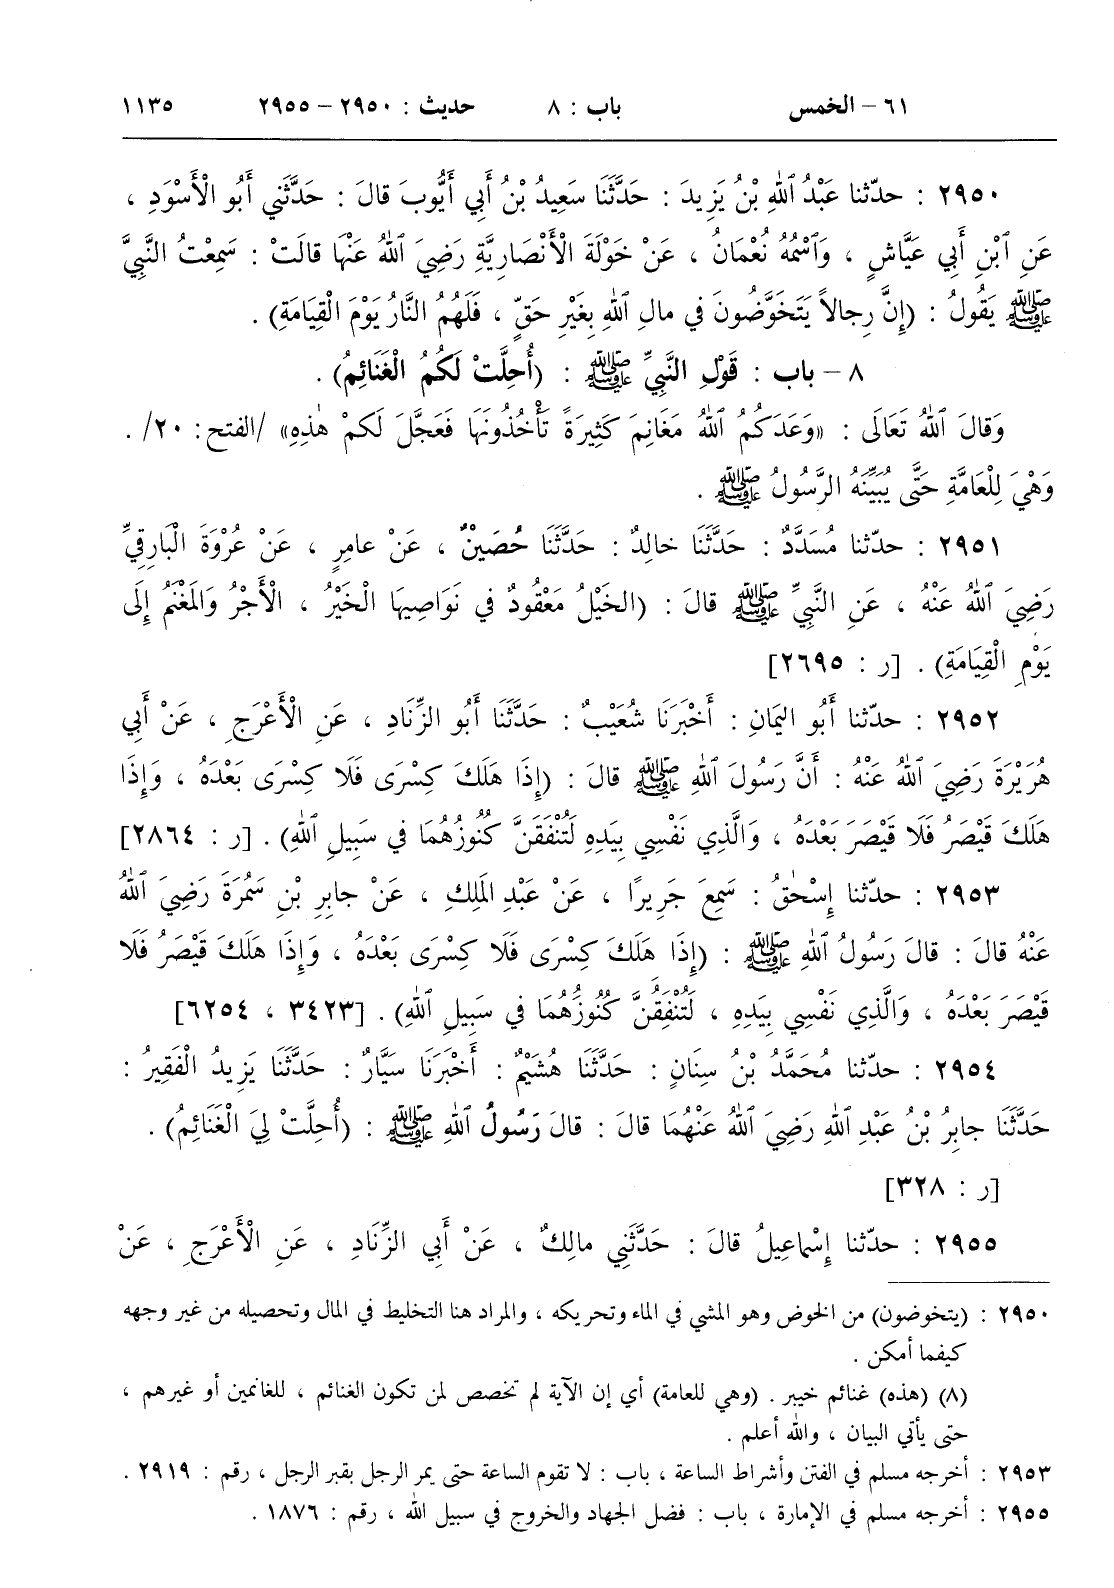 ٦١ – الخمس باب : ٨ حديث : ٢٩٥٠ – ٢٩٥٥ ١١٣٥
٢٩٥٠ : حدّثنا عَبْدُ ٱللهِ بْنُ يَزِيدَ : حَدَّثَنَا سَعِيدُ بْنُ أَبِي أَيُّوبَ قالَ : حَدَّثَنِي أَبُو الْأَسْوَدِ ،
عَنِ ٱبْنِ أَبِي عَيَّاشٍ ، وَٱسْمُهُ نُعْمَانُ ، عَنْ خَوْلَةَ الْأَنْصَارِيَّةِ رَضِيَ ٱللهُ عَنْهَا قالَتْ : سَمِعْتُ النَّبِيَّ
ﷺ يَقُولُ : (إِنَّ رِجالاً يَتَخَوَّضُونَ في مالِ ٱللهِ بِغَيْرِ حَقٍّ ، فَلَهُمُ النَّارُ يَوْمَ الْقِيَامَةِ) .
٨ – باب : قَوْلِ النَّبِيِّ ﷺ : (أُحِلَّتْ لَكُمُ الْغَنَائِمُ) .
وَقالَ ٱللهُ تَعَالَى : «وَعَدَكُمُ ٱللهُ مَغَانِمَ كَثِيرَةً تَأْخُذُونَهَا فَعَجَّلَ لَكمْ هٰذِهِ» /الفتح: ٢٠/ .
وَهْيَ لِلْعَامَّةِ حَتَّى يُبَيِّنَهُ الرَّسُولُ ﷺ .
٢٩٥١ : حدّثنا مُسَدَّدٌ : حَدَّثَنَا خالِدٌ : حَدَّثَنَا حُصَيْنٌ ، عَنْ عامِرٍ ، عَنْ عُرْوَةَ الْبَارِقِيِّ
رَضِيَ ٱللهُ عَنْهُ ، عَنِ النَّبِيِّ ﷺ قالَ : (الخَيْلُ مَعْقُودٌ في نَوَاصِيهَا الْخَيْرُ ، الْأَجْرُ وَالمَغْنَمُ إِلَى
يَوْمِ الْقِيَامَةِ) . [ر : ٢٦٩٥]
٢٩٥٢ : حدّثنا أَبُو اليَمَانِ : أَخْبَرَنَا شُعَيْبٌ : حَدَّثَنَا أَبُو الزِّنَادِ ، عَنِ الْأَعْرَجِ ، عَنْ أَبِي
هُرَيْرَةَ رَضِيَ ٱللهُ عَنْهُ : أَنَّ رَسُولَ ٱللهِ ﷺ قالَ : (إِذَا هَلَكَ كِسْرَى فَلَا كِسْرَى بَعْدَهُ ، وَإِذَا
هَلَكَ قَيْصَرُ فَلَا قَيْصَرَ بَعْدَهُ ، وَالَّذِي نَفْسِي بِيَدِهِ لَتُنْفَقَنَّ كُنُوزُهُمَا في سَبِيلِ ٱللهِ) . [ر : ٢٨٦٤]
٢٩٥٣ : حدّثنا إِسْحٰقُ : سَمِعَ جَرِيرًا ، عَنْ عَبْدِ المَلِكِ ، عَنْ جابِرِ بْنِ سَمُرَةَ رَضِيَ ٱللهُ
عَنْهُ قالَ : قالَ رَسُولُ ٱللهِ ﷺ : (إِذَا هَلَكَ كِسْرَى فَلَا كِسْرَى بَعْدَهُ ، وَإِذَا هَلَكَ قَيْصَرُ فَلَا
قَيْصَرَ بَعْدَهُ ، وَالَّذِي نَفْسِي بِيَدِهِ ، لَتُنْفَقَنَّ كُنُوزُهُمَا في سَبِيلِ ٱللهِ) . [٣٤٢٣ ، ٦٢٥٤]
٢٩٥٤ : حدّثنا مُحَمَّدُ بْنُ سِنَانٍ : حَدَّثَنَا هُشَيْمٌ : أَخْبَرَنَا سَيَّارٌ : حَدَّثَنَا يَزِيدُ الْفَقِيرُ :
حَدَّثَنَا جابِرُ بْنُ عَبْدِ ٱللهِ رَضِيَ ٱللهُ عَنْهُمَا قالَ : قالَ رَسُولُ ٱللهِ ﷺ : (أُحِلَّتْ لِيَ الْغَنَائِمُ) .
[ر : ٣٢٨]
٢٩٥٥ : حدّثنا إِسْماعِيلُ قالَ : حَدَّثَنِي مالِكٌ ، عَنْ أَبِي الزِّنَادِ ، عَنِ الْأَعْرَجِ ، عَنْ
٢٩٥٠ : (يتخوضون) من الخوض وهو المشي في الماء وتحريكه ، والمراد هنا التخليط في المال وتحصيله من غير وجهه
كيفما أمكن .
(٨) (هذه) غنائم خيبر . (وهي للعامة) أي إن الآية لم تخصص لمن تكون الغنائم ، للغانمين أو غيرهم ،
حتى يأتي البيان ، والله أعلم .
٢٩٥٣ : أخرجه مسلم في الفتن وأشراط الساعة ، باب : لا تقوم الساعة حتى يمر الرجل بقبر الرجل ، رقم : ٢٩١٩ .
٢٩٥٥ : أخرجه مسلم في الإمارة ، باب : فضل الجهاد والخروج في سبيل الله ، رقم : ١٨٧٦ .